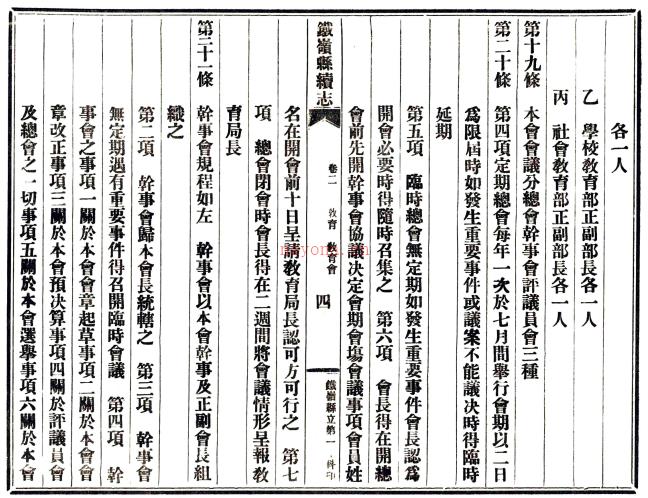 各一人
乙　學校教育部正副部長各一人
丙　社會教育部正副部長各一人
第十九條　本會會議分總會幹事會評議員會三種
第二十條　第四項定期總會每年一次於七月間舉行會期以二日
爲限屆時如發生重要事件或議案不能議決時得臨時
延期
第五項　臨時總會無定期如發生重要事件會長認爲
開會必要時得隨時召集之　第六項　會長得在開總
會前先開幹事會協議決定會期會塲會議事項會員姓
鐵嶺縣續志
卷二　敎育　敎育會
四
鐵嶺縣立第一 科印
名在開會前十日呈請敎育局長認可方可行之　第七
項　總會閉會時會長得在二週間將會議情形呈報敎
育局長
第二十一條　幹事會規程如左　幹事會以本會幹事及正副會長組
織之
第二項　幹事會歸本會長統轄之　第三項　幹事會
無定期遇有重要事件得召開臨時會議　第四項　幹
事會之事項一關於本會會章起草事項二關於本會會
章改正事項三關於本會預決算事項四關於評議員會
及總會之一切事項五關於本會選舉事項六關於本會